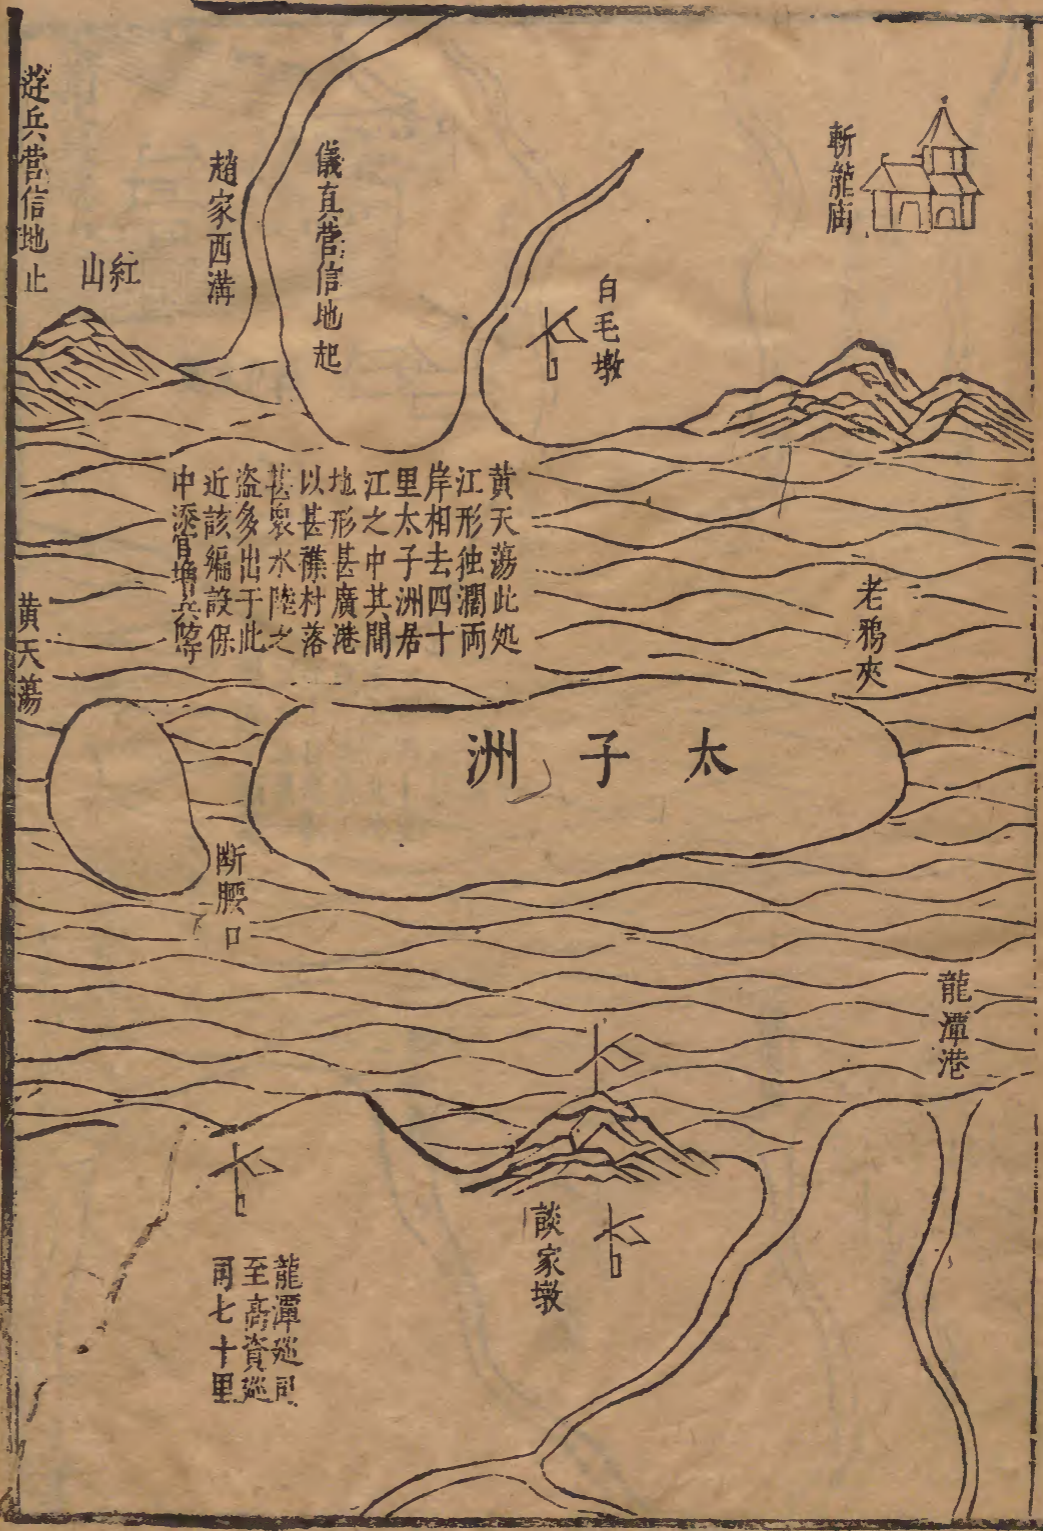 斬龍庙
白毛墩
儀真营信地起
趙家西溝
紅山
遊兵营信地止
黄天蕩此処
江形独濶両
岸相去四十
里太子洲居
江之中其間
地形甚廣港
以甚襍村落
甚衆水陸之
盗多出于此
近該編設保
中添官增兵防守
老鴉夾
黄天蕩
太子洲
断腰口
龍潭港
談家墩
龍潭廵司
至高資廵
司七十里